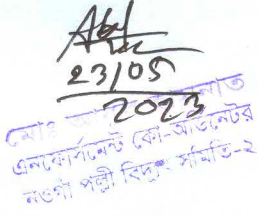 23/05
2023
মোঃ
এনফোর্সমেন্ট কো-অর্ডিনেটর
নওগাঁ পল্লী বিদ্যুৎ সমিতি-২